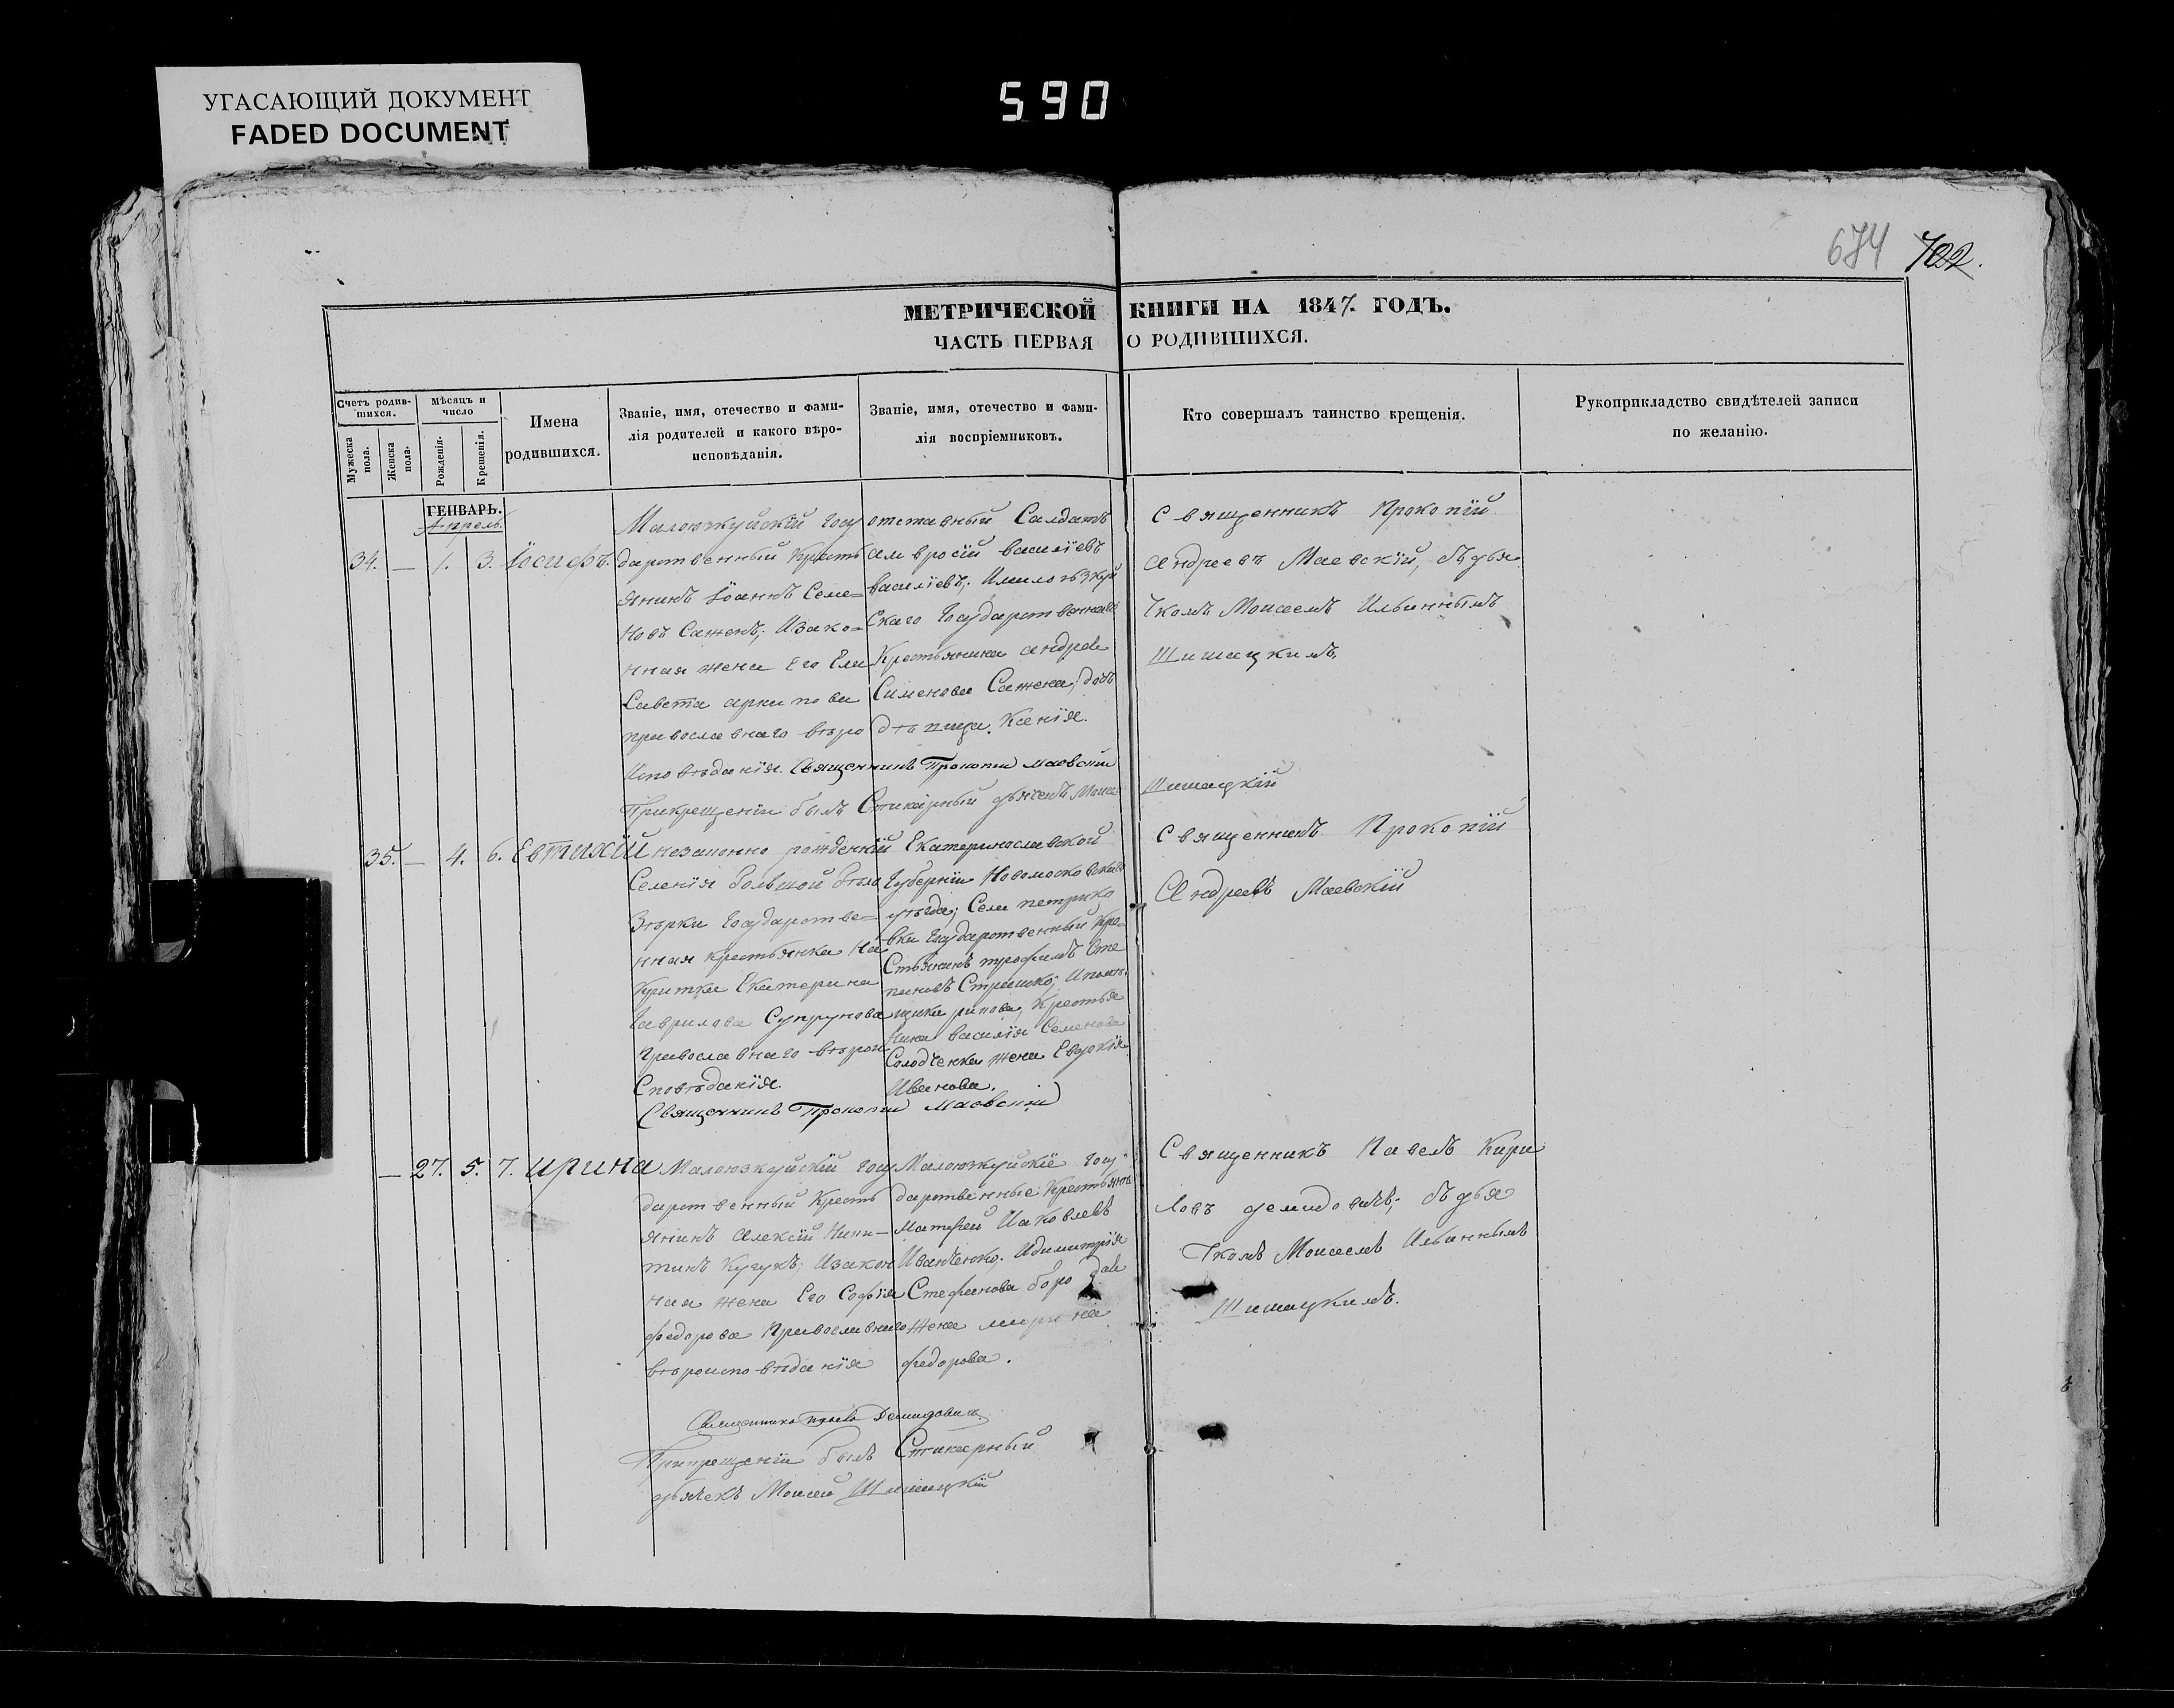 УГАСАЮЩИЙ ДОКУМЕНТ
FADED DOCUMENT
590
674 702.
МЕТРИЧЕСКОЙ КНИГИ НА 1847. ГОДЪ.
ЧАСТЬ ПЕРВАЯ О РОДИВШИХСЯ.
Счетъ родив-
шихся.
Мужеска
пола.
Женска
пола.
Мѣсяцъ и
число
Рожденія.
Крещенія.
Имена
родившихся.
Званіе, имя, отечество и фами-
лія родителей и какого вѣро-
исповѣданія.
Званіе, имя, отечество и фами-
лія воспріемниковъ.
Кто совершалъ таинство крещенія.
Рукоприкладство свидѣтелей записи
по желанію.
ГЕНВАРЬ.
Апрель.
34. — 1. 3. Іосифъ.
Малоюзкуйскій Госу
дарственный Кресть
янинъ Іоаннъ Семе=
новъ Саженъ; Изако=
нная жена Его Ели
Савета архипова
православнаго вѣро
Исповѣданія. Священникъ Прокопій Маевскій
Прикрещеніи былъ Стихарный дьячекъ Моисе
отставный Салдатъ
амвросій василіевъ
василіевъ; Ималоюзкуй
Скаго Государственнаго
Крестьянина андрея
Сименова Сажена; дочь
дѣвица Ксенія.
Священникъ Прокопій
Андреевъ Маевскій, съ дья
чкомъ Моисеемъ Ильиннымъ
Шишацкимъ,
Шишацкій
35. — 4. 6. Евтихій
незаконно рожденный
Селенія Большой бѣло
Зѣрки Государстве=
нная крестьянка
Критка Екатерина
Гаврилова Супрунова
Православнаго вѣрои
Сповѣданія.
Священникъ Прокопій Маевскій
Екатеринославской
Губерніи Новомосковскаго
уѣзда; Села петрико
вки Государственный Кре=
Стьянинъ трофимъ Сте
пановъ Страшко; Ипомѣ
щика рипова, Крестья
нина василія Семенова
Солодченка жена Евдокія
Иванова.
Священникъ Прокопій
Андреевъ Маевскій
— 27. 5. 7. Ирина
Малоюзкуйскій Госу
дарственный Кресть
янинъ Алексій Ники-
тинъ Кугукъ; Изакон
ная жена Его Софія
федорова Православнаго
вѣроисповѣданія
Малоюзкуйскіе Госу
дарственные Крестьяне
Матфей Иаковлевъ
Иванченко. Идимитрія
Стефанова боро
жена
федорова.
Священникъ Павелъ Демидовичъ
Прикрещеніи былъ Стихарный
дьячекъ Моисей Шишацкій
Священникъ Павелъ Кири
ловъ демидовичъ; съ дья
чкомъ Моисеемъ Ильиннымъ
Шишацкимъ.